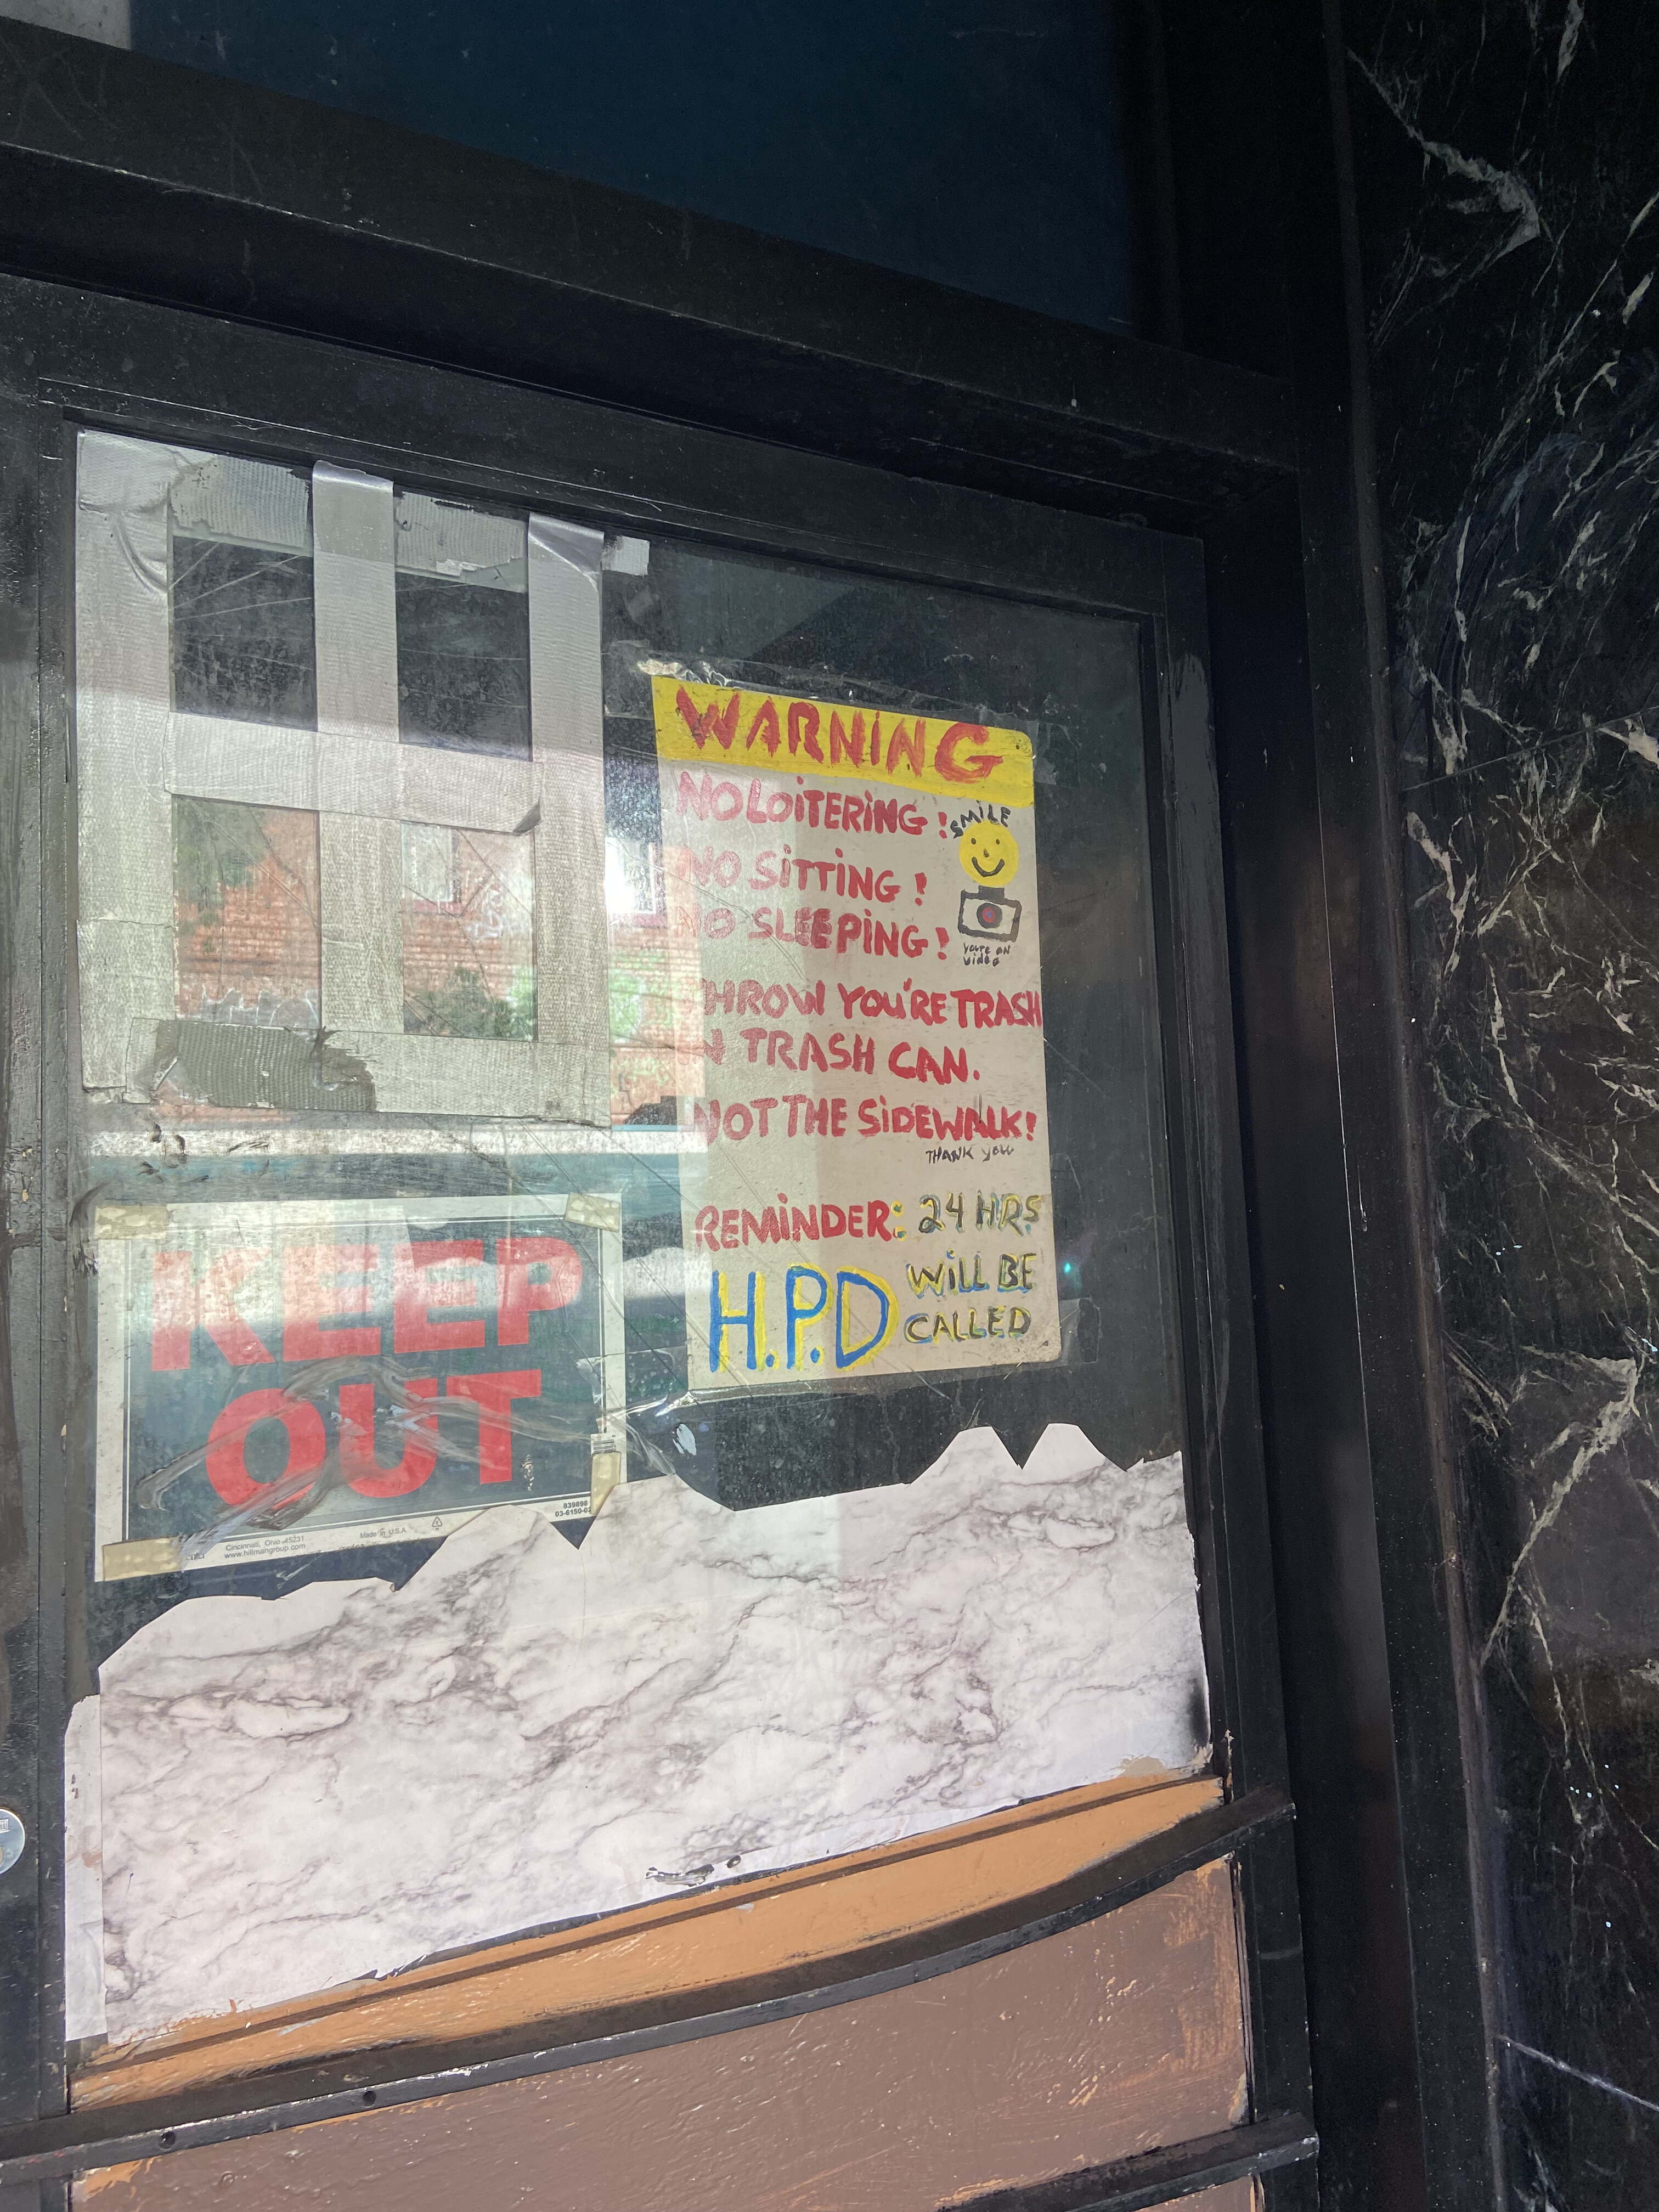 WARNiNG
NO LOiTERiNG!
SMiLE
NO SiTTiNG!
NO SLEEPiNG!
YOU'RE ON
ViDEO
THROW YOU'RE TRASH
iN TRASH CAN.
NOT THE SiDEWALK!
THANK YOU
REMiNDER: 24 HRS
H.P.D WiLL BE
CALLED
KEEP
OUT
839898
Cincinnati, Ohio 45231
www.hillmangroup.com
Made in U.S.A.